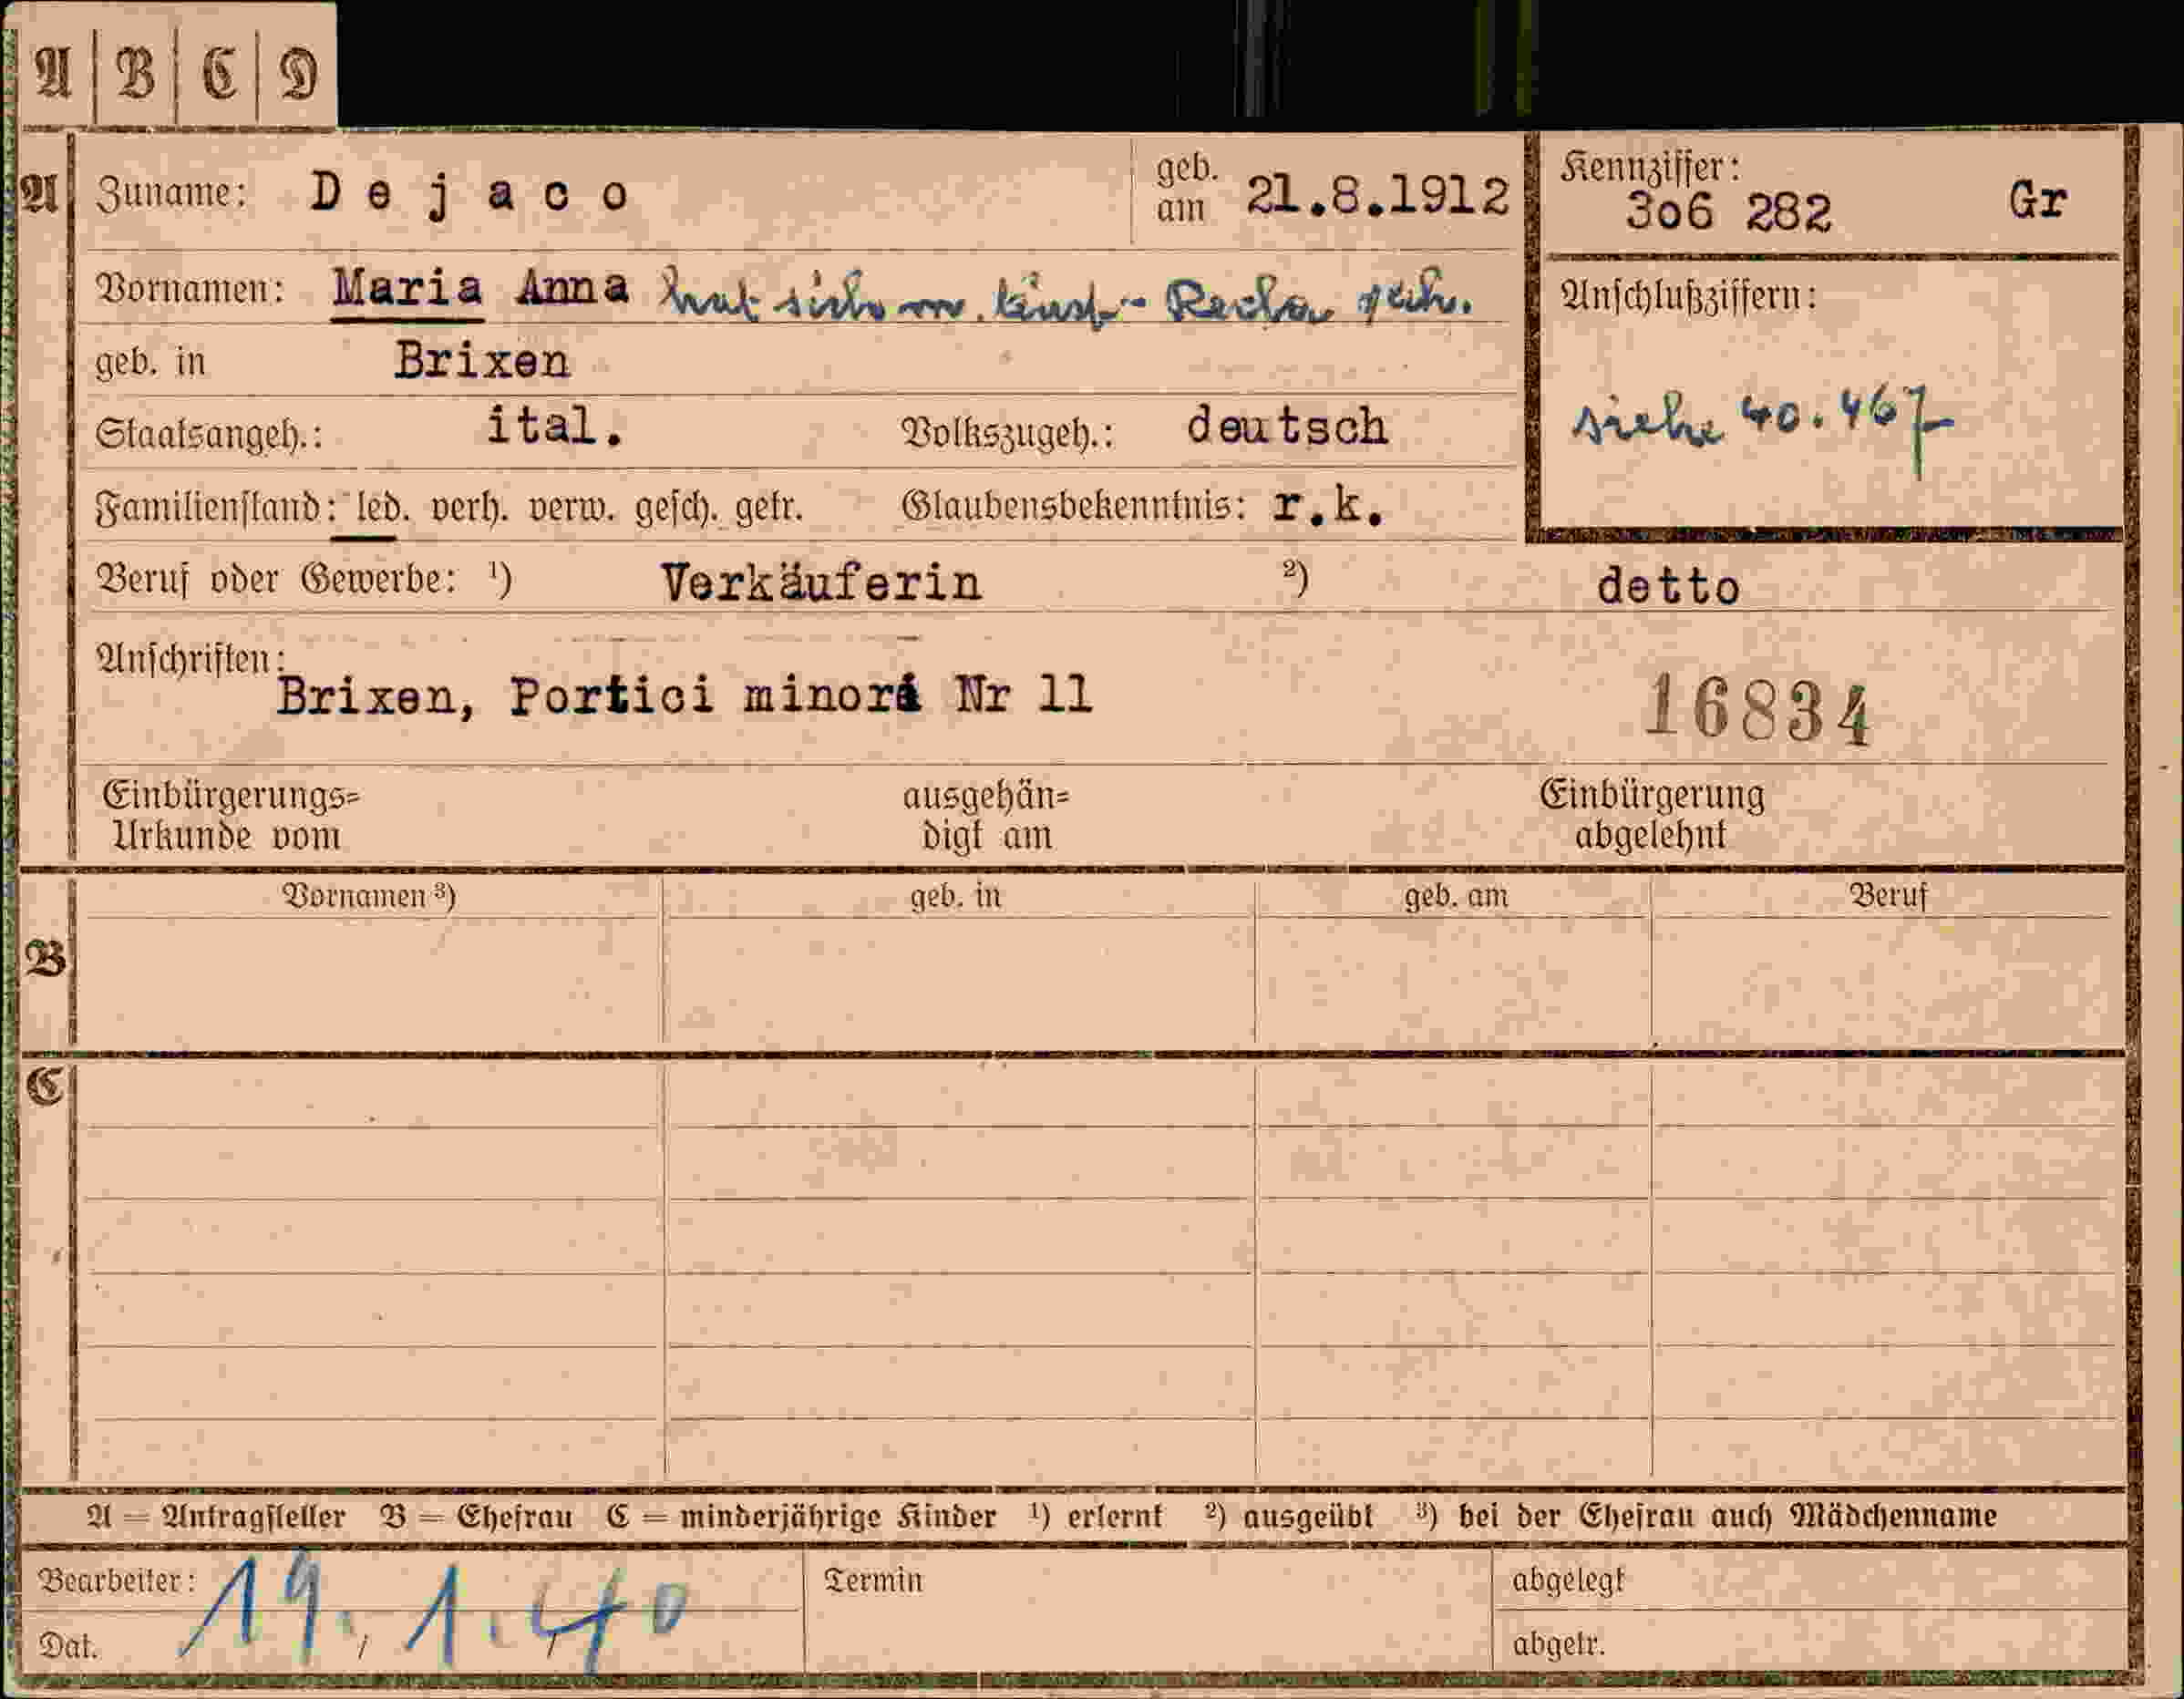 A B C D
A Zuname: Dejaco geb. am 21.8.1912 Kennziffer: 306 282 Gr
Vornamen: Maria Anna hat sich m.
Anschlußziffern:
geb. in Brixen
siehe 40.467
Staatsangeh.: ital. Volkszugeh.: deutsch
Familienstand: led. verh. verw. gesch. getr. Glaubensbekenntnis: r.k.
Beruf oder Gewerbe: ¹) Verkäuferin ²) detto
Anschriften:
Brixen, Portici minori Nr 11
16834
Einbürgerungs= ausgehän= Einbürgerung
Urkunde vom digt am abgelehnt
Vornamen ³) geb. in geb. am Beruf
B
C
A = Antragsteller B = Ehefrau C = minderjährige Kinder ¹) erlernt ²) ausgeübt ³) bei der Ehefrau auch Mädchenname
Bearbeiter: Termin abgelegt
Dat. 19.1.40 abgetr.